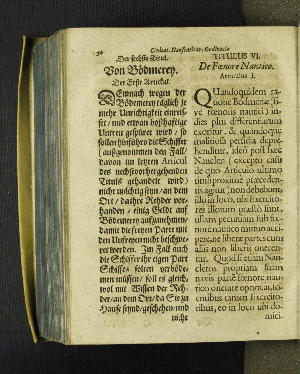 56
Civitat. Hanseaticar. Ordinatio
Der sechste Titul.
Von Bödmerey.
Der Erste Articul.
DEmnach wegen der
Bödemerey täglich je
mehr Unrichtigkeit einreis-
set / und etwan boßhafftige
Untreu gespüret wird / so
sollen hinführo die Schiffer
(außgenommen den Fall /
davon im letzten Articul
des nechst vorhergehenden
Tituls gehandelt wird)
nicht mächtig seyn / an dem
Ort / da ihre Rehder vor-
handen / einig Geldt auf
Bödmerey aufzunehmen /
damit die freyen Parte mit
den Unfreyen nicht beschwe-
ret worden. Im Fall auch
die Schiffer ihr eigen Part
Schiffes solten verböde-
men müssen / soll es gleich-
wol mit Wissen der Reh-
der / an dem Ort / da Sie zu
Hause seynd / geschehen / und
nicht
TITULUS VI.
De Fœnore Nautico.
Articulus I.
QUandoquidem ra-
tione Bödmeriæ (si-
ve fœnoris nautici) in-
dies plus differentiarum
exoritur, & quandoque
malitiosa perfidia depre-
henditur, ideò post hæc
Naucleri (excepto casu
de quo Articulo ultimo
tituli proximè præceden-
tis agitur,) non debebunt,
illo in loco, ubi Exercito-
res illorum præstò sunt,
ullam pecuniam sub fœ-
nore nautico mutuò acci-
pere, ne liberæ partes cum
aliis non liberis oneren-
tur. Quod si etiam Nau-
cleros propriam suam
navis parte fœnore nau-
tico onerare oporteat, sci-
entibus tamen Exercito-
ribus, eo in loco ubi do-
mici-